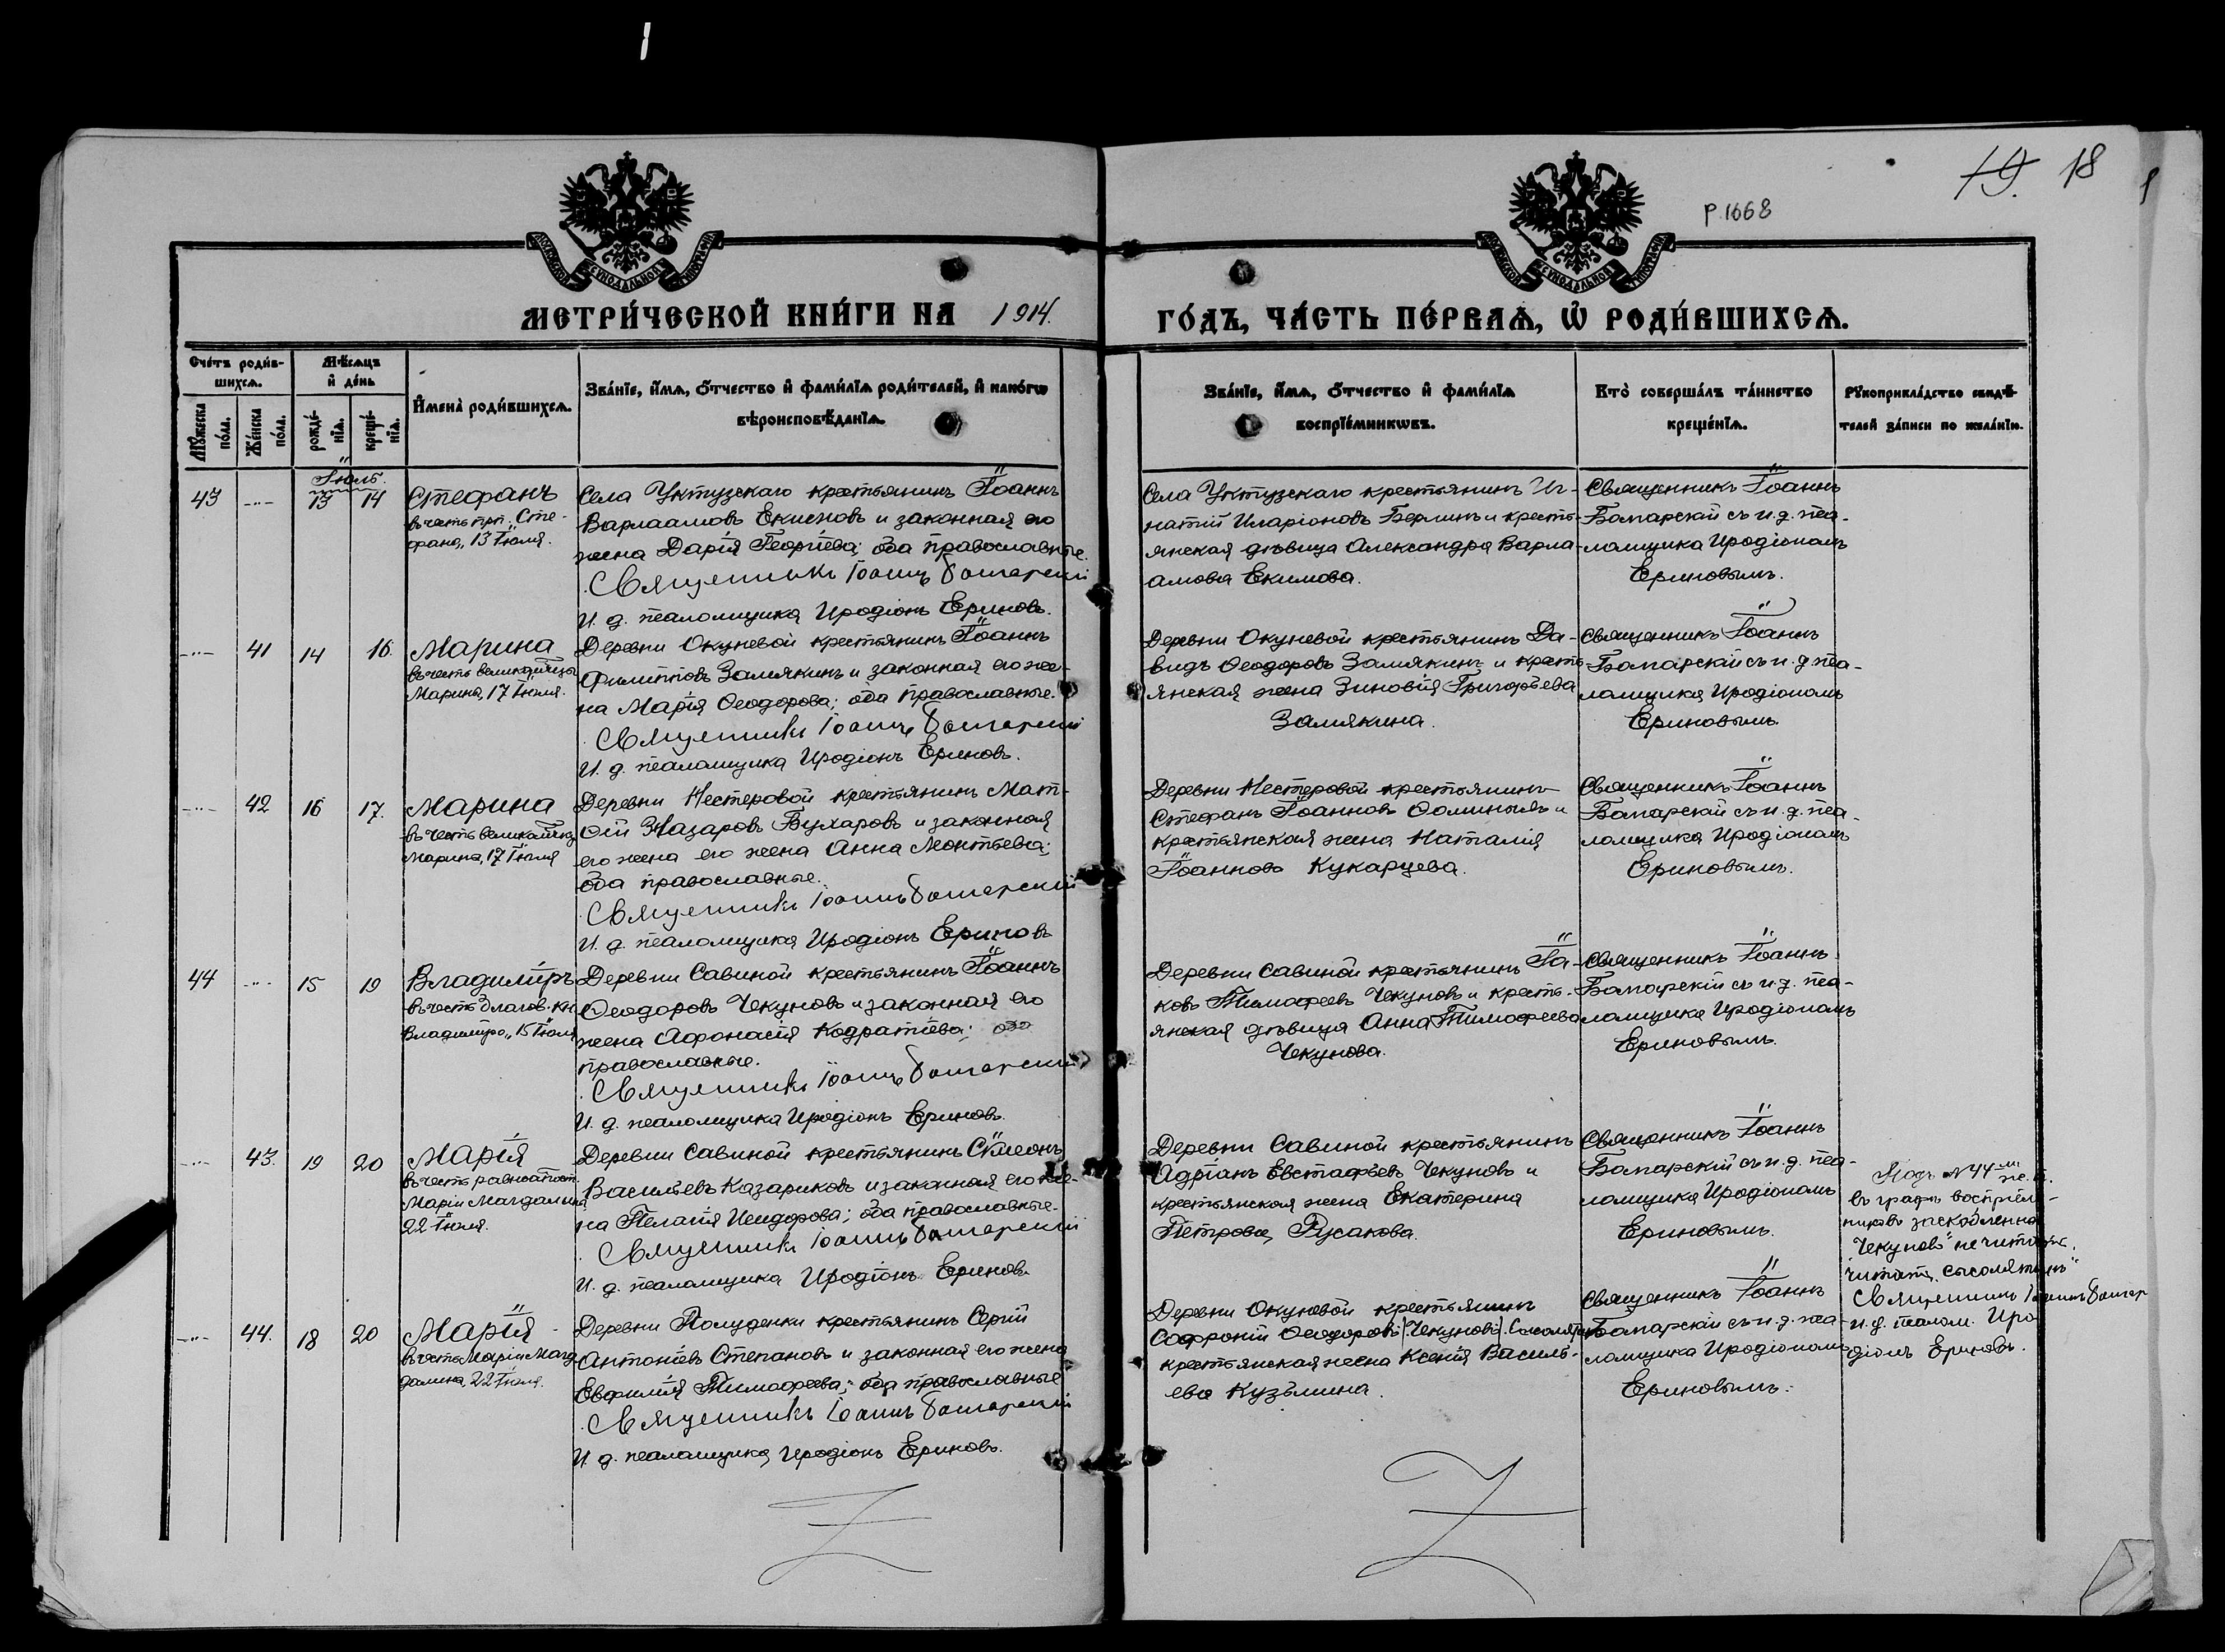 19. 18
р. 1668
МОСКОВСКОЙ СѴНОДАЛЬНОЙ ТИПОГРАФІИ
МОСКОВСКОЙ СѴНОДАЛЬНОЙ ТИПОГРАФІИ
МЕТРИ́ЧЕСКОЙ КНИ́ГИ НА 1914. ГО́ДЪ, ЧА́СТЬ ПЕ́РВАѦ, Ѡ҆ РОДИ́ВШИХСѦ.
Сче́тъ роди́в-
шихсѧ.
Мѣ́сѧцъ
и҆ де́нь
Мꙋ́жеска по́ла.
Же́нска по́ла.
рожде́-
нїѧ.
креще́-
нїѧ.
И҆мена̀ роди́вшихсѧ.
Зва́нїе, и҆́мѧ, ѻ҆́тчество и҆ фами́лїѧ роди́телей, и҆ како́гѡ
вѣроисповѣ́данїѧ.
Зва́нїе, и҆́мѧ, ѻ҆́тчество и҆ фами́лїѧ
воспрїе́мникѡвъ.
Кто̀ соверша́лъ та́инство
креще́нїѧ.
Рꙋкоприкла́дство свидѣ́-
телей за́писи по жела́нїю.
Іюль.
43 -"- 13 14 Стефанъ
въ честь прп. Сте-
фана, 13 Іюля.
Села Уктузскаго крестьянинъ Іоаннъ
Варлаамовъ Екимовъ и законная его
жена Дарія Георгіева; оба православные.
Священникъ Іоаннъ Бомарскій
И. д. псаломщика Иродіонъ Ериновъ.
Села Уктузскаго крестьянинъ Иг-
натій Иларіоновъ Берлинъ и кресть-
янская дѣвица Александра Варла-
амова Екимова.
Священникъ Іоаннъ
Бомарскій съ и. д. пса-
ломщика Иродіономъ
Ериновымъ.
-"- 41 14 16. Марина
въ честь великомуч.
Марины, 17 Іюля.
Деревни Окуневой крестьянинъ Іоаннъ
Филипповъ Замякинъ и законная его же-
на Марія Ѳеодорова; оба православные.
Священникъ Іоаннъ Бомарскій
И. д. псаломщика Иродіонъ Ериновъ.
Деревни Окуневой крестьянинъ Да-
видъ Ѳеодоровъ Замякинъ и кресть-
янская жена Зиновія Григорьева
Замякина.
Священникъ Іоаннъ
Бомарскій съ и. д. пса-
ломщика Иродіономъ
Ериновымъ.
-"- 42 16 17. Марина
въ честь великомуч.
Марины, 17 Іюля
Деревни Нестеровой крестьянинъ Мат-
ѳій Назаровъ Бухаровъ и законная
его жена его жена Анна Леонтьева;
оба православные.
Священникъ Іоаннъ Бомарскій
И. д. псаломщика Иродіонъ Ериновъ
Деревни Нестеровой крестьянинъ
Стефанъ Іоанновъ Ѳоминыхъ и
крестьянская жена Наталія
Іоаннова Кукарцева.
Священникъ Іоаннъ
Бомарскій съ и. д. пса-
ломщика Иродіономъ
Ериновымъ.
44 -"- 15 19 Владиміръ
въ честь благов. кн.
Владиміра, 15 Іюля
Деревни Савиной крестьянинъ Іоаннъ
Ѳеодоровъ Чекуновъ и законная его
жена Афонасія Кодратіева; оба
православные.
Священникъ Іоаннъ Бомарскій
И. д. псаломщика Иродіонъ Ериновъ.
Деревни Савиной крестьянинъ Іа-
ковъ Тимофеевъ Чекуновъ и кресть-
янская дѣвица Анна Тимофеева
Чекунова.
Священникъ Іоаннъ
Бомарскій съ и. д. пса-
ломщика Иродіономъ
Ериновымъ.
-"- 43. 19 20 Марія
въ честь равноапост.
Маріи Магдалины
22 Іюля.
Деревни Савиной крестьянинъ Сімеонъ
Васильевъ Казариковъ и законная его же-
на Пелагія Исидорова; оба православные.
Священникъ Іоаннъ Бомарскій
И. д. псаломщика Иродіонъ Ериновъ
Деревни Савиной крестьянинъ
Адріанъ Евстафьевъ Чекуновъ и
крестьянская жена Екатерина
Петрова Русакова.
Священникъ Іоаннъ
Бомарскій съ и. д. пса-
ломщика Иродіономъ
Ериновымъ.
-"- 44. 18 20 Марія
въ честь Маріи Магд-
далины 22 Іюля.
Деревни Полуденки крестьянинъ Сергій
Антоніевъ Степановъ и законная его жена
Евфимія Тимофеева; оба православные
Священникъ Іоаннъ Бомарскій
И. д. псаломщика Иродіонъ Ериновъ.
Деревни Окуневой крестьянинъ
Софроній Ѳеодоровъ (Чекуновъ) Сысолятинъ
крестьянская жена Ксенія Василь-
ева Кузьмина.
Священникъ Іоаннъ
Бомарскій съ и. д. пса-
ломщика Иродіономъ
Ериновымъ.
Подъ №44 ж. п.
въ графѣ воспріем-
никовъ заскобленно
"Чекуновъ" не читать,
читать "Сысолятинъ"
Священникъ Іоаннъ Бомар
и. д. псалом. Иро
діонъ Ериновъ.